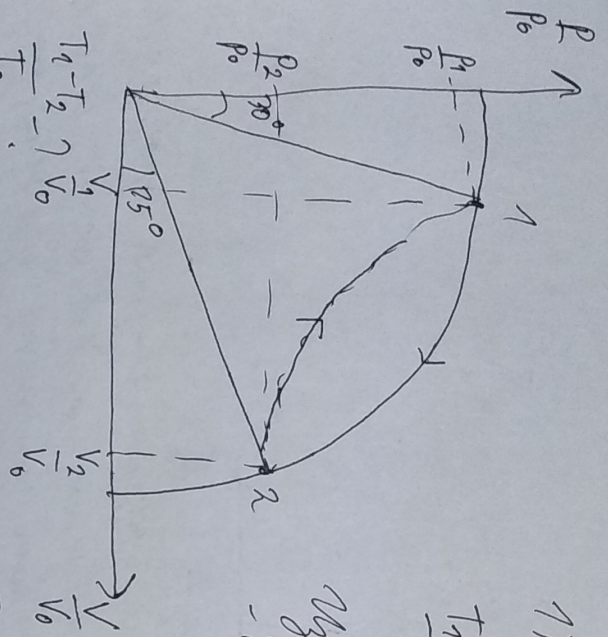 P/P₀
P₁/P₀
P₂/P₀
30°
15°
1
2
V₁/V₀
V₂/V₀
V/V₀
T₁-T₂
- ?
T₁